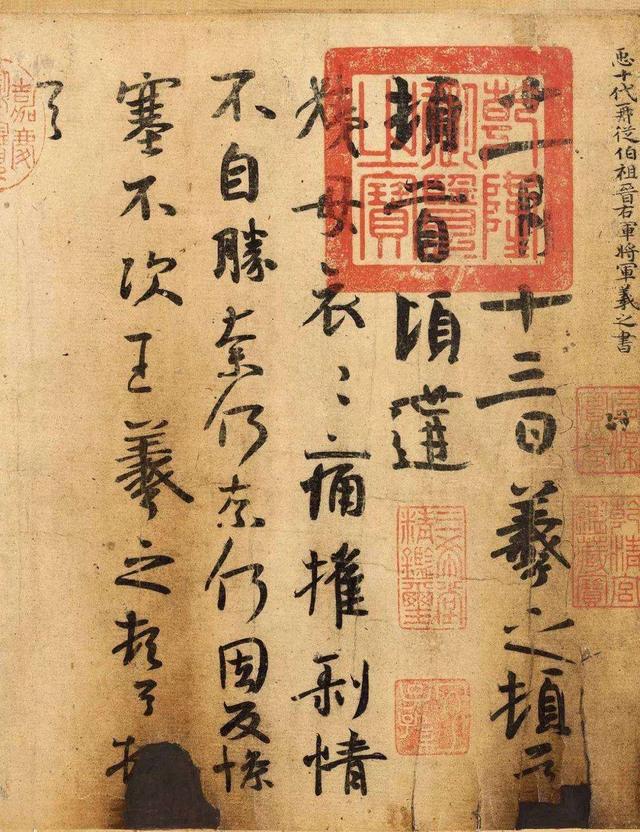 臣十代再從伯祖晉右軍將軍羲之書
十一月十三日羲之頓首
頓首頃遘
姨母哀〻痛摧剝情
不自勝奈何奈何因反慘
塞不次王羲之頓首頓
首
乾隆御覽之寶
乾清宮鑑藏寶
三希堂精鑑璽
嘉慶